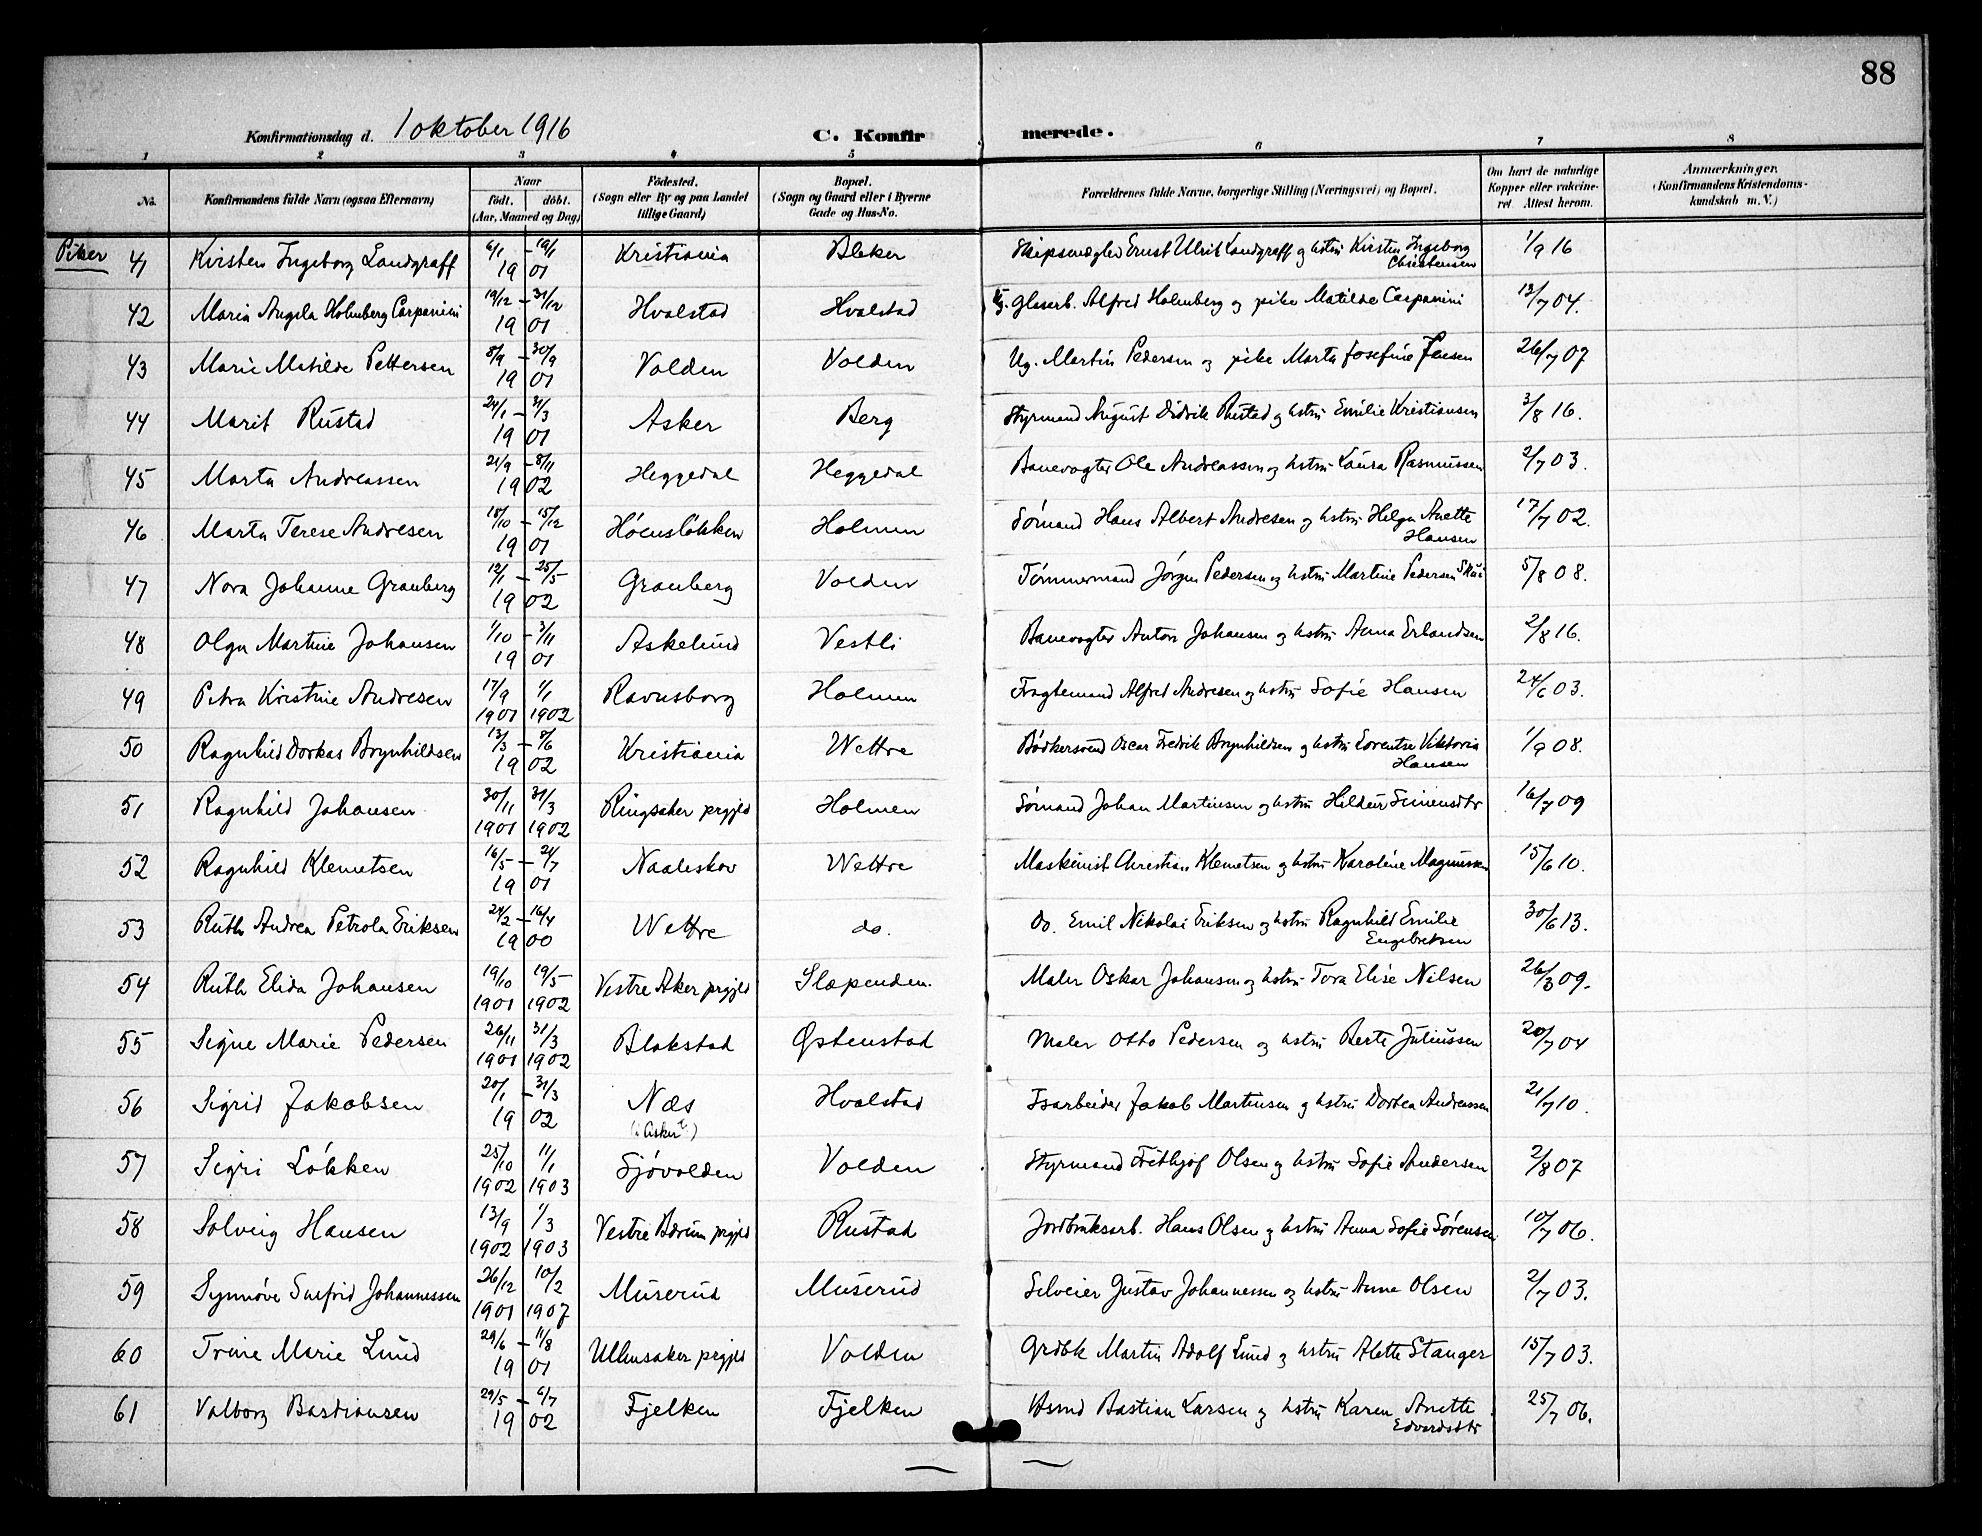 88
Konfirmationsdag d. 1 oktober 1916 C. Konfirmerede.
1 2 3 4 5 6 7 8
No. Konfirmandens fulde Navn (ogsaa Efternavn) Naar født. døbt. (Aar, Maaned og Dag) Fødested. (Sogn eller By og paa Landet tillige Gaard) Bopæl. (Sogn og Gaard eller i Byerne Gade og Hus-No. Forældrenes fulde Navne, borgerlige Stilling (Næringsvei) og Bopæl. Om havt de naturlige Kopper eller vakcineret. Attest herom. Anmærkninger. (Konfirmandens Kristendomskundskab m. V.)
Piker 41 Kirsten Ingeborg Landgraff 6/1 – 19/1 1901 Kristiania Bleker Skipsmægler Ernst Ulrik Landgraff og hstru Kirsten Ingeborg Christensen 1/9 16
42 Maria Angela Holmberg Carpanini 19/12 – 31/12 1901 Hvalstad Hvalstad Glaserb. Alfred Holmberg og pike Matilde Carpanini 13/7 04.
43 Marie Matilde Pettersen 8/9 – 30/9 1901 Volden Volden Ug. Martin Pedersen og pike Marta Josefine Jensen 26/7 07
44 Marit Rustad 24/1 – 31/3 1901 Asker Berg Styrmand August Didrik Rustad og hstru Emilie Kristiansen 3/8 16.
45 Marta Andreassen 21/9 – 8/11 1902 Heggedal Heggedal Banevogter Ole Andreassen og hstru Laura Rasmussen 2/7 03.
46 Marta Terese Andresen 18/10 – 15/12 1901 Hønsløkken Holmen Sømand Hans Albert Andresen og hstru Helga Anette Hansen 17/7 02.
47 Nora Johanne Granberg 12/1 – 25/5 1902 Granberg Volden Tømmermand Jørgen Pedersen og hstru Martine Pedersen Skui 5/8 08.
48 Olga Martine Johansen 1/10 – 3/11 1901 Askelund Vestli Banevogter Anton Johansen og hstru Anna Erlandsen 2/8 16.
49 Petra Kristine Andresen 17/9 1901 1/1 1902 Ravnsborg Holmen Fragtemand Alfred Andresen og hstru Sofie Hansen 24/6 03.
50 Ragnhild Dorkas Brynhildsen 13/3 – 8/6 1902 Kristiania Wettre Bødkersvend Oscar Fredrik Brynhildsen og hstru Lorentse Viktoria Hansen 1/9 08.
51 Ragnhild Johansen 30/11 1901 31/3 1902 Ringsaker prgjld Holmen Sømand Johan Martinsen og hstru Heldeur Simensdtr 16/7 09
52 Ragnhild Klemetsen 16/5 – 21/7 1901 Naaleskov Wettre Maskinist Christian Klemetsen og hstru Karoline Magnussen 15/6 10.
53 Ruth Andrea Petrola Eriksen 24/2 – 16/4 1900 Wettre do. Do. Emil Nikolai Eriksen og hstru Ragnhild Emilie Engebretsen 30/6 13.
54 Ruth Elida Johansen 19/10 1901 19/5 1902 Vestre Aker prgjld Slæpenden. Maler Oskar Johansen og hstru Tora Elise Nilsen 26/3 09.
55 Signe Marie Pedersen 26/11 1901 31/3 1902 Blakstad Østenstad Maler Otto Pedersen og hstru Berte Juliussen 20/7 04
56 Sigrid Jakobsen 20/1 – 31/3 1902 Næs (i Asker) Hvalstad Isarbeider Jakob Martinsen og hstru Dortea Andreassen 21/7 10.
57 Sigri Løkken 25/10 1902 11/1 1903 Sjøvolden Volden Styrmand Frithjof Olsen og hstru Sofie Andersen 2/8 07
58 Solveig Hansen 13/9 1902 1/3 1903 Vestre Bærum prgjld Rustad Jordbruksarb. Hans Olsen og hstru Anna Sofie Sørensen 10/7 06.
59 Synnøve Snefrid Johannessen 26/12 1901 10/2 1907 Muserud Muserud Selveier Gustav Johannessen og hstru Anne Olsen 2/7 03.
60 Trine Marie Lund 29/6 – 11/8 1901 Ullensaker prgjld Volden Grdbk Martin Adolf Lund og hstru Alette Stanger 15/7 03.
61 Valborg Bastiansen 29/5 – 6/7 1902 Fjelken Fjelken Hsmd Bastian Larsen og hstru Karen Anette Edvardsdtr 25/7 06.